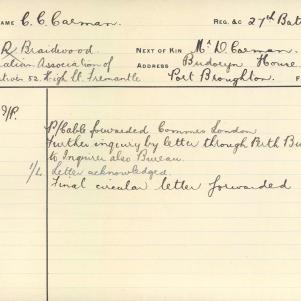 NAME C. C. Carman. REG. &C 27th Bat
R Braidwood NEXT OF KIN Mr D. Carman.
alian Association of ADDRESS Budoryn House
52 High St. Fremantle Port Broughton. F
P/Cable forwarded Commrs London
Further inquiry by letter through Perth Bu
to Inquirer also Bureau.
Letter acknowledged.
Final circular letter forwarded